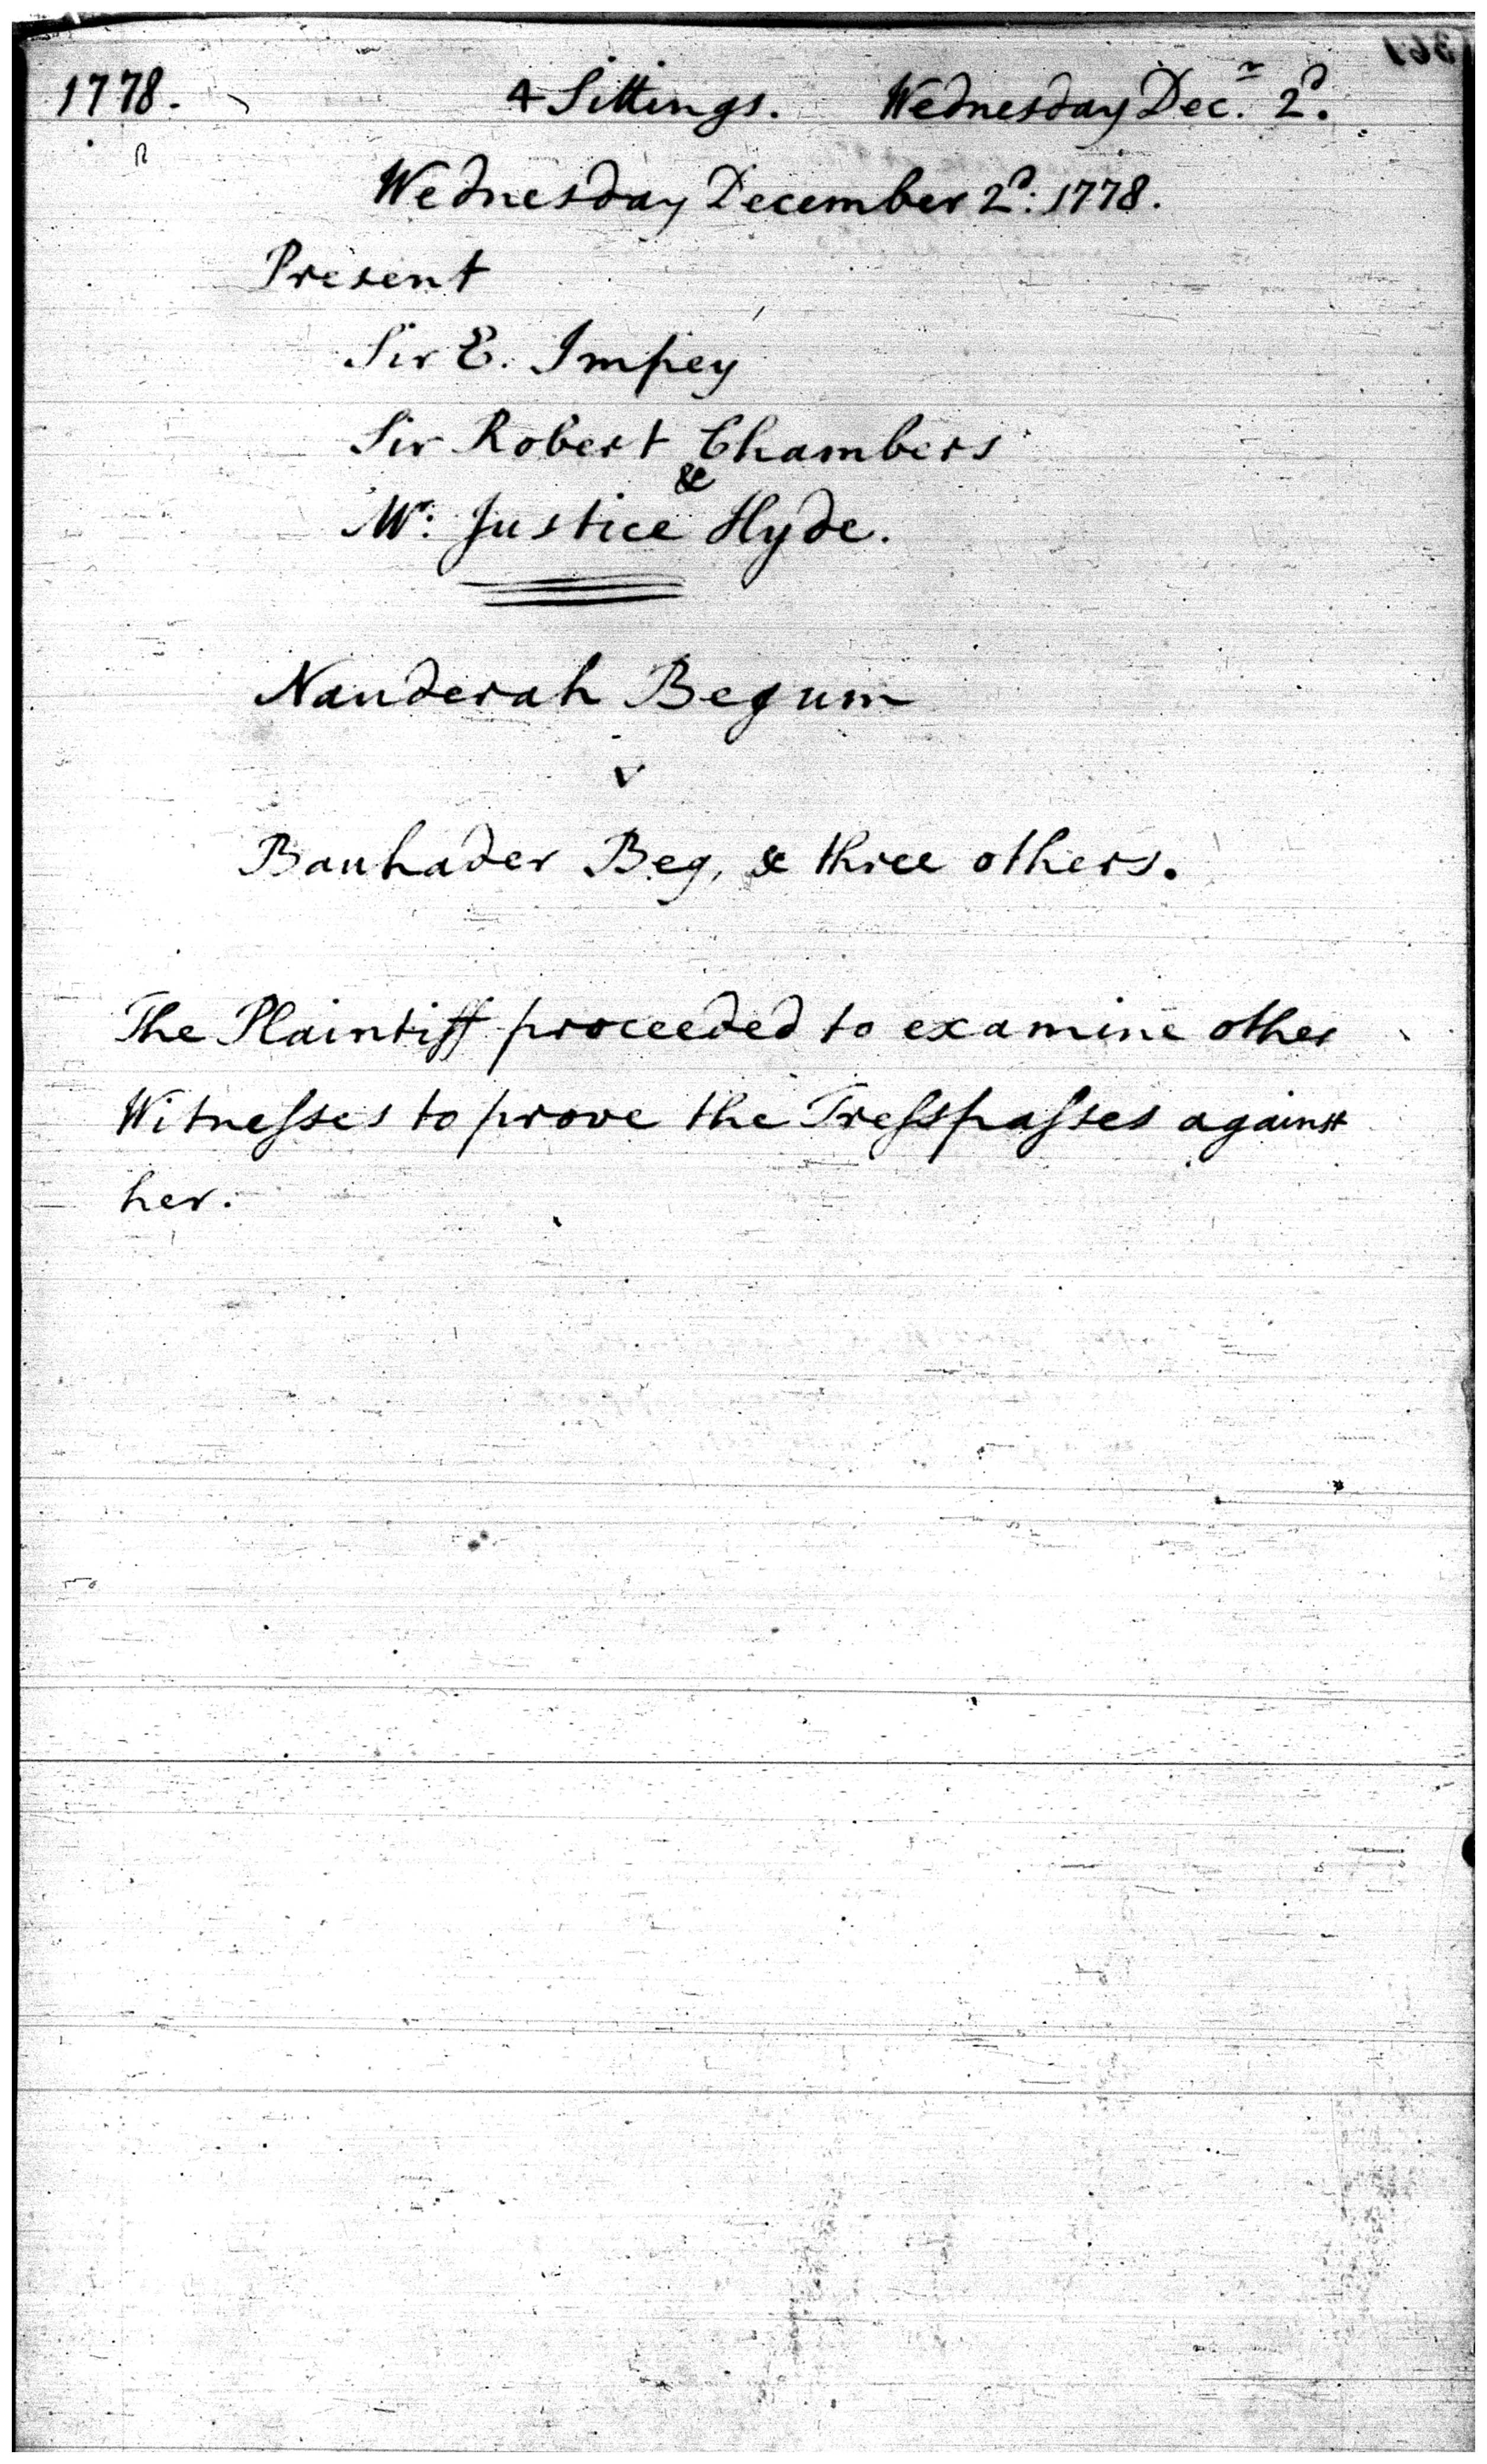 1778. 4 Sittings. Wednesday Decr. 2d.
Wednesday December 2d: 1778.
Present
Sir E. Impey
Sir Robert Chambers
&
Mr: Justice Hyde.
Nauderah Begum
v
Bauhader Beg, & three others.
The Plaintiff proceeded to examine other
Witnesses to prove the Tresspasses against
her.